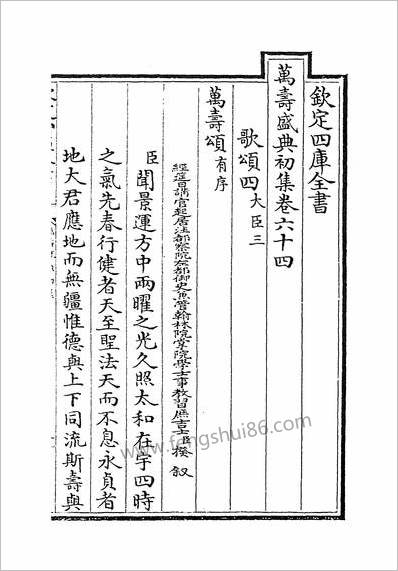 欽定四庫全書
萬壽盛典初集卷六十四
歌頌四大臣三
萬壽頌有序
經筵日講官起居注都察院左都御史兼管翰林院掌院學士事教習庶吉士臣揆敘
臣聞景運方中兩曜之光久照太和在宇四時
之氣先春行健者天至聖法天而不息永貞者
地大君應地而無疆惟德與上下同流斯壽與
www.fengshui86.com